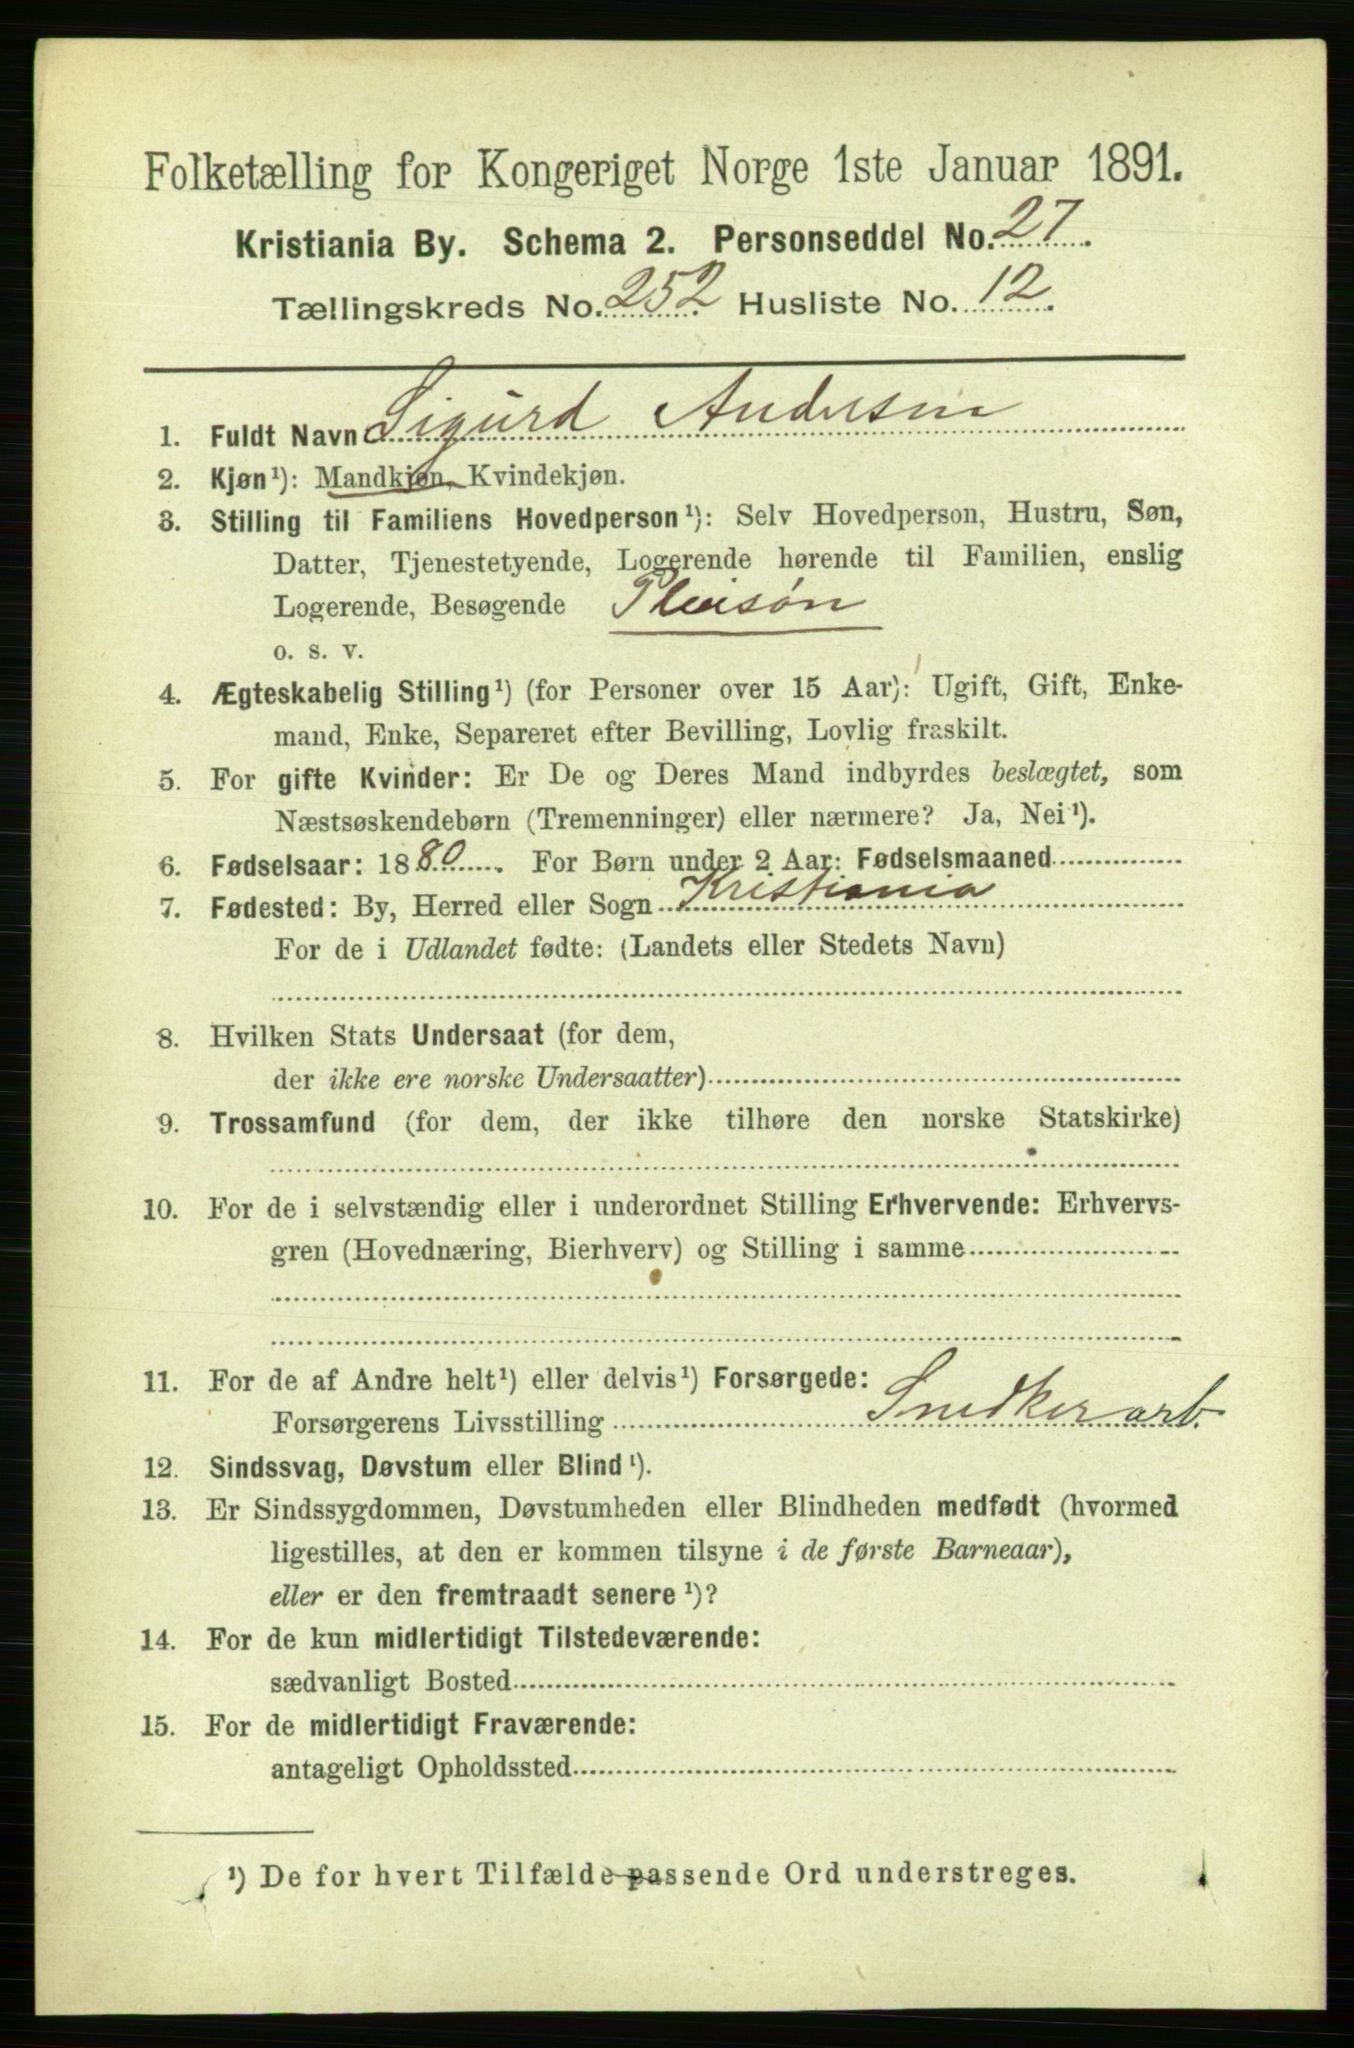 Folketælling for Kongeriget Norge 1ste Januar 1891.
Kristiania By. Schema 2. Personseddel No. 27.
Tællingskreds No. 252 Husliste No. 12.
1. Fuldt Navn Sigurd Andersen
2. Kjøn¹): Mandkjøn, Kvindekjøn.
3. Stilling til Familiens Hovedperson¹): Selv Hovedperson, Hustru, Søn,
Datter, Tjenestetyende, Logerende hørende til Familien, enslig
Logerende, Besøgende Pleisøn
o. s. v.
4. Ægteskabelig Stilling¹) (for Personer over 15 Aar): Ugift, Gift, Enke-
mand, Enke, Separeret efter Bevilling, Lovlig fraskilt.
5. For gifte Kvinder: Er De og Deres Mand indbyrdes beslægtet, som
Næstsøskendebørn (Tremenninger) eller nærmere? Ja, Nei¹).
6. Fødselsaar: 1880. For Børn under 2 Aar: Fødselsmaaned
7. Fødested: By, Herred eller Sogn Kristiania
For de i Udlandet fødte: (Landets eller Stedets Navn)
8. Hvilken Stats Undersaat (for dem,
der ikke ere norske Undersaatter)
9. Trossamfund (for dem, der ikke tilhøre den norske Statskirke)
10. For de i selvstændig eller i underordnet Stilling Erhvervende: Erhvervs-
gren (Hovednæring, Bierhverv) og Stilling i samme
11. For de af Andre helt¹) eller delvis¹) Forsørgede:
Forsørgerens Livsstilling Snedkerarb.
12. Sindssvag, Døvstum eller Blind¹).
13. Er Sindssygdommen, Døvstumheden eller Blindheden medfødt (hvormed
ligestilles, at den er kommen tilsyne i de første Barneaar),
eller er den fremtraadt senere¹)?
14. For de kun midlertidigt Tilstedeværende:
sædvanligt Bosted
15. For de midlertidigt Fraværende:
antageligt Opholdssted
¹) De for hvert Tilfælde passende Ord understreges.